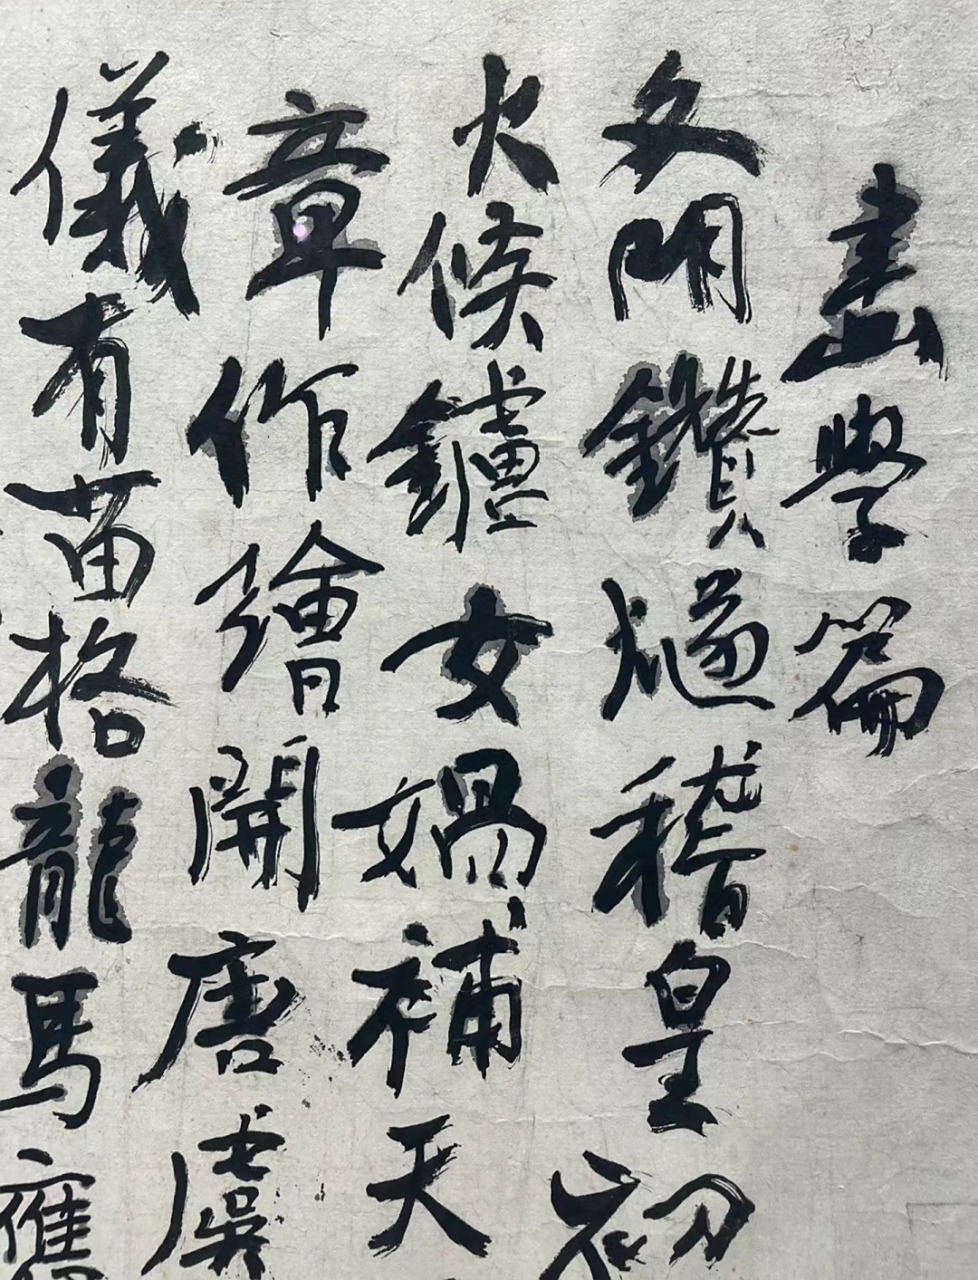 畫學篇
文明鑽燧稽皇初
火候鑪女媧補天
章作繪開唐虞
儀有苗格龍馬應